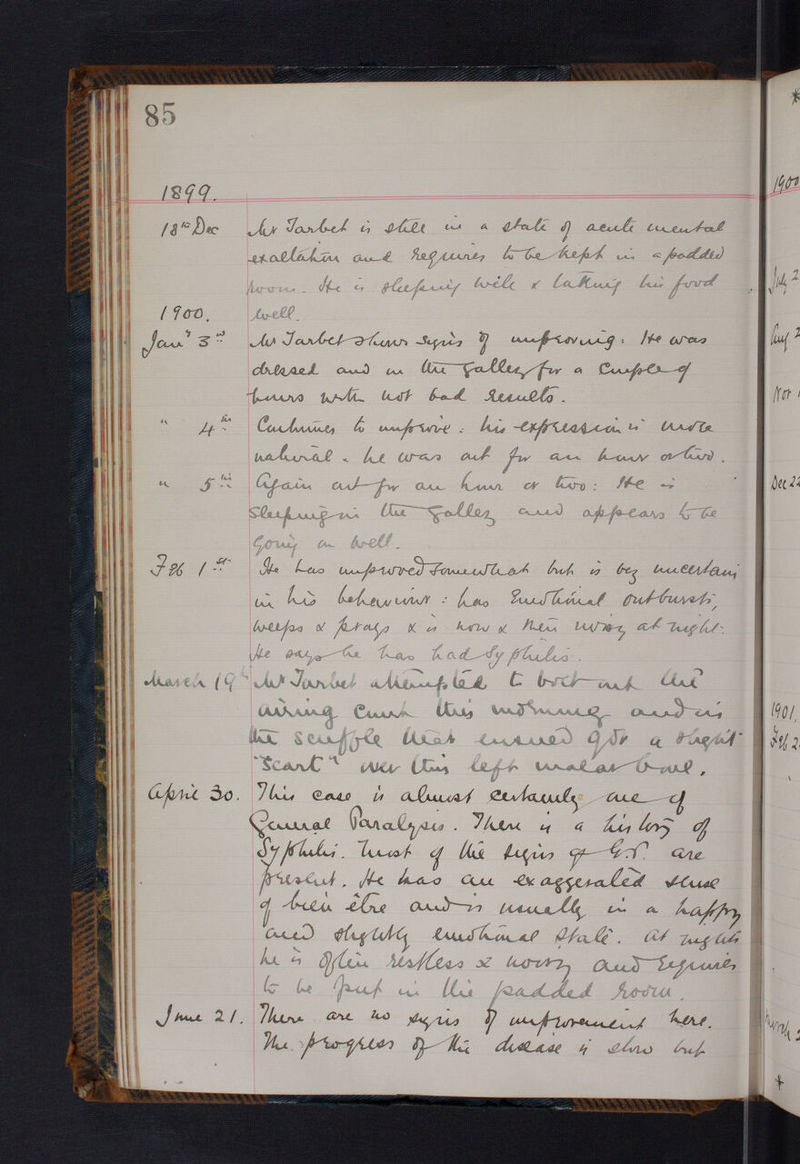 85
1899.
18th Dec Mr Tarbet is still in a state of acute mental
exaltation and requires to be kept in a padded
room. He is sleeping well & taking his food
1900. well.
Jany 3rd Mr Tarbet shows signs of improving: He was
dressed and in the galley for a couple of
hours with not bad results.
" 4th Continues to improve: his expression is more
natural. he was out for an hour or two.
" 5th Again out for an hour or two: He is
sleeping in the galley and appears to be
going on well.
Feb 1st He has improved somewhat but is very uncertain
in his behaviour: has emotional outbursts,
weeps & prays & is now & then noisy at night.
He says he has had Syphilis.
March 19th Mr Tarbet attempted to bolt out the
airing court this morning and in
the scuffle that ensued got a slight
"scart" over the left malar bone.
April 30. This case is almost certainly one of
General Paralysis. There is a history of
Syphilis. Most of the signs of G.P. are
present. He has an exaggerated sense
of bien être and is usually in a happy
and slightly emotional state. At nights
he is often restless & noisy and requires
to be put in the padded room.
June 21. There are no signs of improvement here.
The progress of the disease is slow but
1900
July 2
Aug 2
Nov
Dec 22
1901,
Feb 2
March